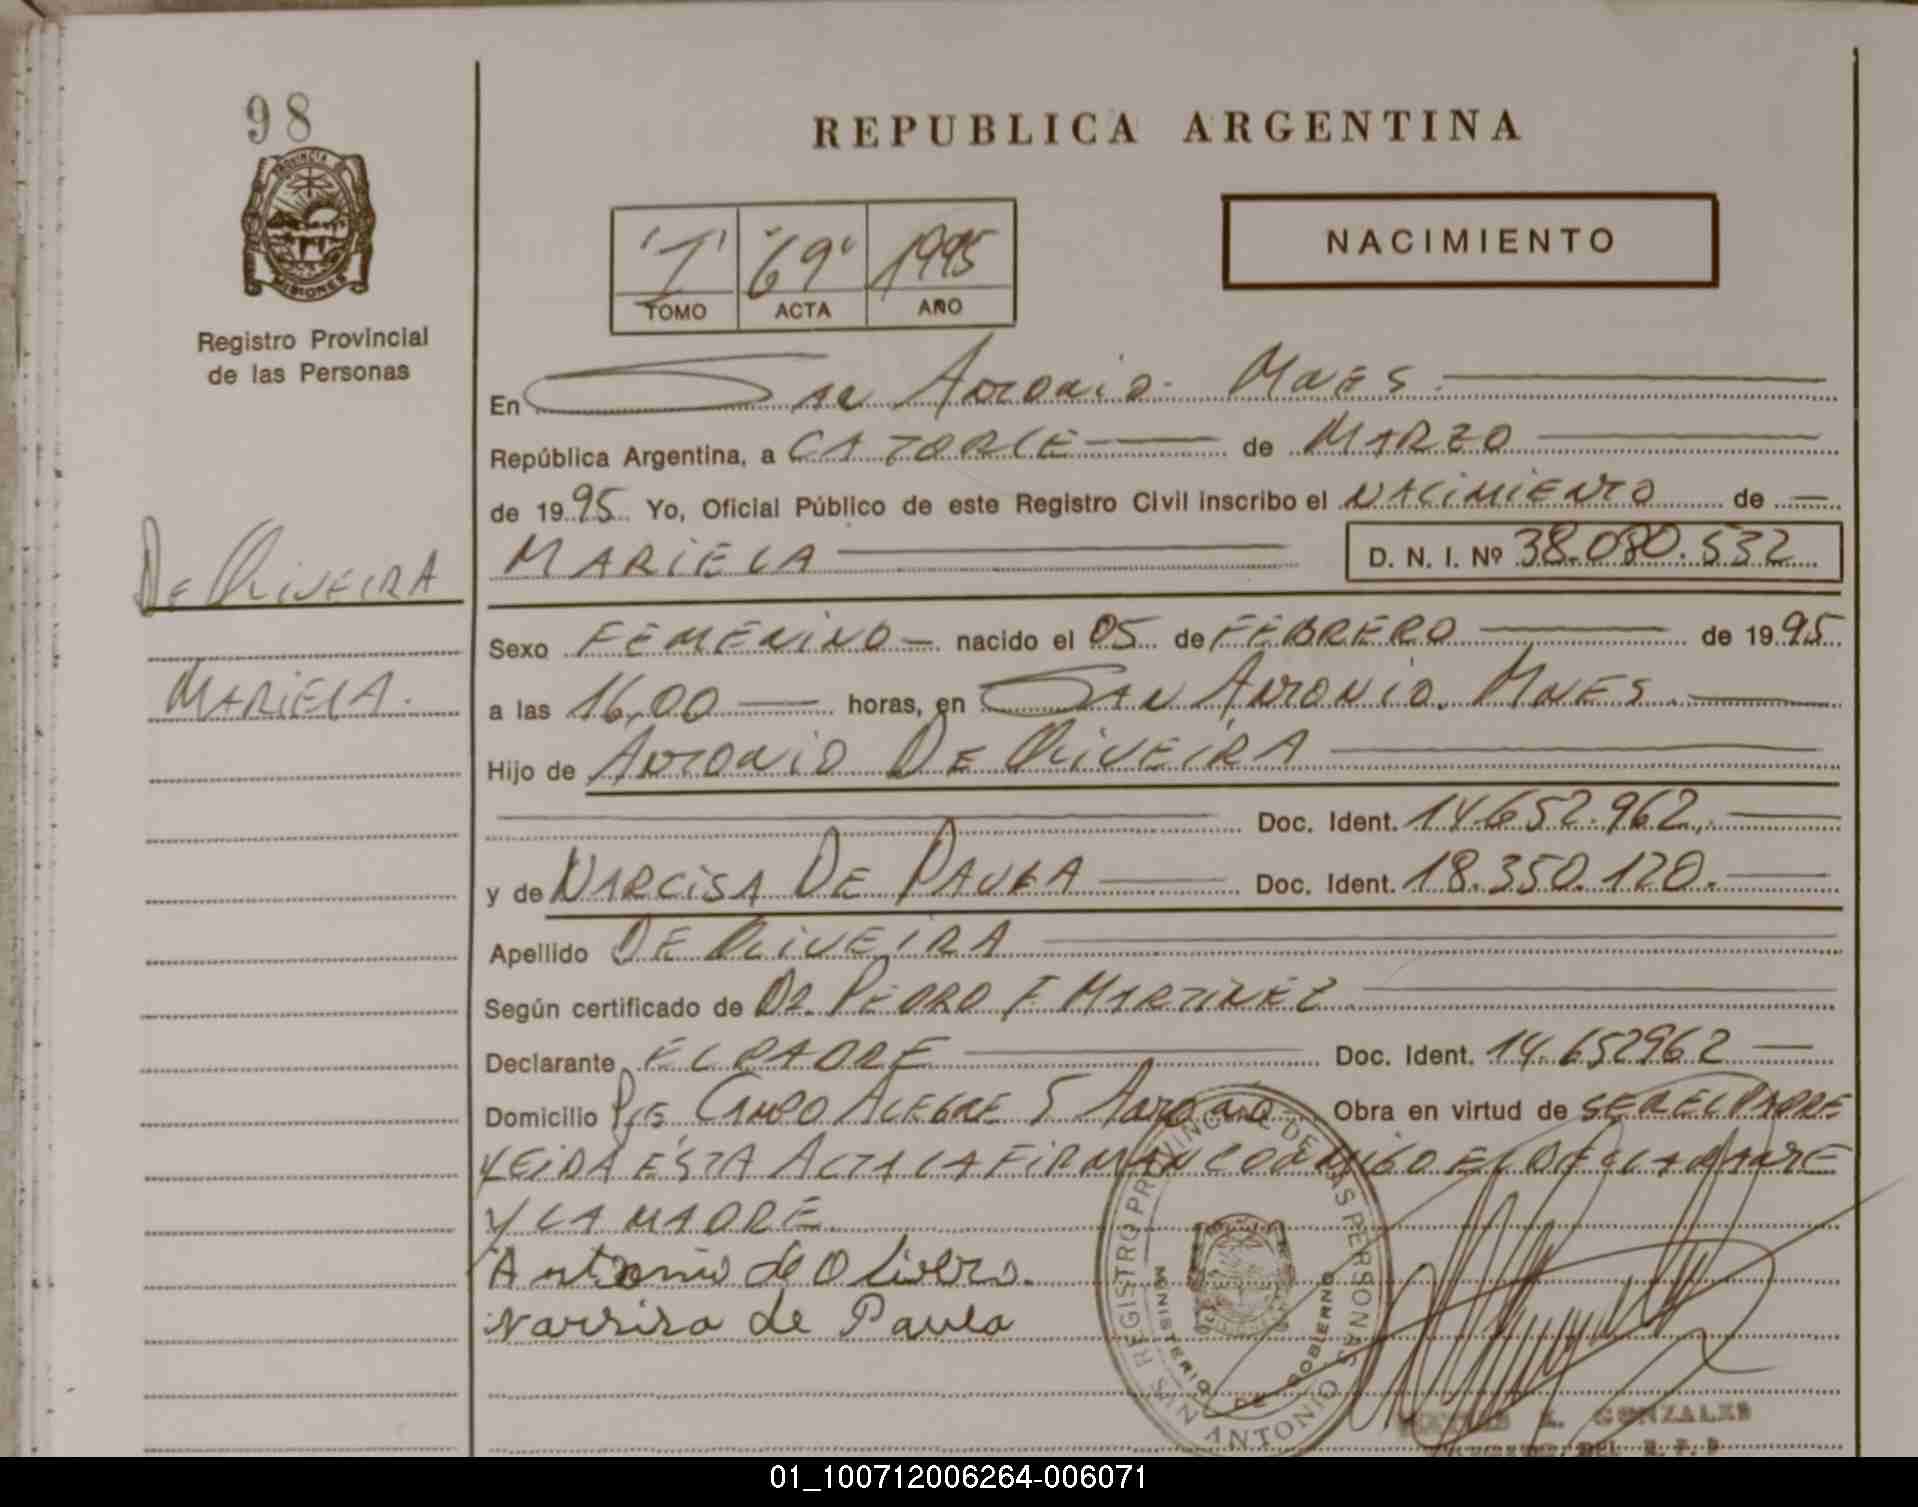 98
PROVINCIA DE
MISIONES
Registro Provincial
de las Personas
REPUBLICA ARGENTINA
NACIMIENTO
"I" "69" 1995
TOMO ACTA AÑO
En San Antonio. Mnes.
República Argentina, a CATORCE de MARZO
de 1995 Yo, Oficial Público de este Registro Civil inscribo el NACIMIENTO de
DE OLIVEIRA
MARIELA D. N. I. Nº 38.080.532
Sexo FEMENINO nacido el 05 de FEBRERO de 1995
MARIELA.
a las 16,00 horas, en SAN ANTONIO. MNES.
Hijo de ANTONIO DE OLIVEIRA
Doc. Ident. 14.652.962.
y de NARCISA DE PAULA Doc. Ident. 18.350.120.
Apellido DE OLIVEIRA
Según certificado de DR. PEDRO F MARTINEZ
Declarante EL PADRE Doc. Ident. 14.652962
Domicilio Pje CAMPO ALEGRE S ANTONIO Obra en virtud de SER EL PADRE
LEIDA ESTA ACTA LA FIRMAN CONMIGO EL DECLARANTE
Y LA MADRE.
Antonio de Olivera.
Narsisa de Paula
REGISTRO PROVINCIAL DE LAS PERSONAS
MINISTERIO DE GOBIERNO
SAN ANTONIO
GONZALES
DEL R.P.P
01_100712006264-006071